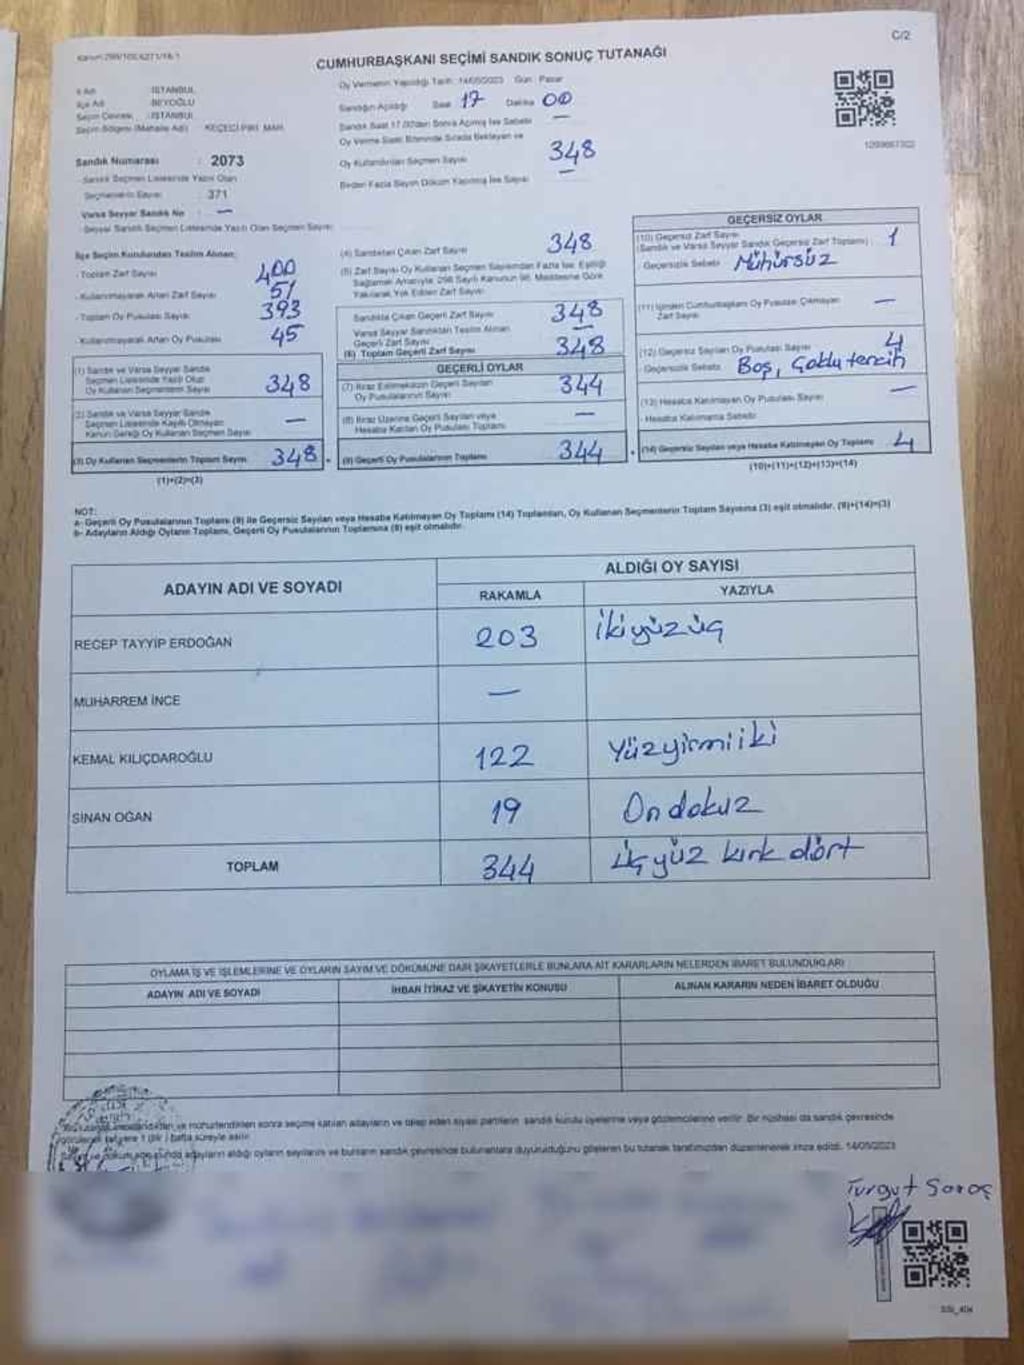 Kanun:298/105,6271/18-1
C/2
CUMHURBAŞKANI SEÇİMİ SANDIK SONUÇ TUTANAĞI
İl Adı : İSTANBUL
İlçe Adı : BEYOĞLU
Seçim Çevresi : İSTANBUL
Seçim Bölgesi (Mahalle Adı) : KEÇECİ PİRİ MAH.
Sandık Numarası : 2073
- Sandık Seçmen Listesinde Yazılı Olan
Seçmenlerin Sayısı : 371
Varsa Seyyar Sandık No : —
- Seyyar Sandık Seçmen Listesinde Yazılı Olan Seçmen Sayısı
Oy Vermenin Yapıldığı Tarih: 14/05/2023 Gün: Pazar
Sandığın Açıldığı Saat 17 Dakika 00
Sandık Saat 17.00'den Sonra Açılmış İse Sebebi —
Oy Verme Saati Bitiminde Sırada Bekleyen ve
Oy Kullandırılan Seçmen Sayısı 348
Birden Fazla Sayım Döküm Yapılmış İse Sayısı —
İlçe Seçim Kurulundan Teslim Alınan;
- Toplam Zarf Sayısı 400
- Kullanılmayarak Artan Zarf Sayısı 51
- Toplam Oy Pusulası Sayısı 393
- Kullanılmayarak Artan Oy Pusulası 45
(1) Sandık ve Varsa Seyyar Sandık
Seçmen Listesinde Yazılı Olup
Oy Kullanan Seçmenlerin Sayısı 348
(2) Sandık ve Varsa Seyyar Sandık
Seçmen Listesinde Kayıtlı Olmayan
Kanun Gereği Oy Kullanan Seçmen Sayısı —
(3) Oy Kullanan Seçmenlerin Toplam Sayısı 348
(1)+(2)=(3)
(4) Sandıktan Çıkan Zarf Sayısı 348
(5) Zarf Sayısı Oy Kullanan Seçmen Sayısından Fazla İse, Eşitliği
Sağlamak Amacıyla; 298 Sayılı Kanunun 98. Maddesine Göre
Yakılarak Yok Edilen Zarf Sayısı
Sandıkta Çıkan Geçerli Zarf Sayısı 348
Varsa Seyyar Sandıktan Teslim Alınan
Geçerli Zarf Sayısı —
(6) Toplam Geçerli Zarf Sayısı 348
GEÇERLİ OYLAR
(7) İtiraz Edilmeksizin Geçerli Sayılan
Oy Pusulalarının Sayısı 344
(8) İtiraz Üzerine Geçerli Sayılan veya
Hesaba Katılan Oy Pusulası Toplamı —
(9) Geçerli Oy Pusulalarının Toplamı 344
GEÇERSİZ OYLAR
(10) Geçersiz Zarf Sayısı
(Sandık ve Varsa Seyyar Sandık Geçersiz Zarf Toplamı) 1
Geçersizlik Sebebi Mühürsüz
(11) İçinden Cumhurbaşkanı Oy Pusulası Çıkmayan
Zarf Sayısı —
(12) Geçersiz Sayılan Oy Pusulası Sayısı 4
Geçersizlik Sebebi Boş, Çoklu tercih
(13) Hesaba Katılmayan Oy Pusulası Sayısı —
- Hesaba Katılmama Sebebi
(14) Geçersiz Sayılan veya Hesaba Katılmayan Oy Toplamı 4
(10)+(11)+(12)+(13)=(14)
NOT:
a- Geçerli Oy Pusulalarının Toplamı (9) ile Geçersiz Sayılan veya Hesaba Katılmayan Oy Toplamı (14) Toplamları, Oy Kullanan Seçmenlerin Toplam Sayısına (3) eşit olmalıdır. (9)+(14)=(3)
b- Adayların Aldığı Oyların Toplamı, Geçerli Oy Pusulalarının Toplamına (9) eşit olmalıdır.
ADAYIN ADI VE SOYADI ALDIĞI OY SAYISI
RAKAMLA YAZIYLA
RECEP TAYYİP ERDOĞAN 203 ikiyüzüç
MUHARREM İNCE —
KEMAL KILIÇDAROĞLU 122 Yüzyirmiiki
SİNAN OĞAN 19 On dokuz
TOPLAM 344 üçyüz kırk dört
OYLAMA İŞ VE İŞLEMLERİNE VE OYLARIN SAYIM VE DÖKÜMÜNE DAİR ŞİKAYETLERLE BUNLARA AİT KARARLARIN NELERDEN İBARET BULUNDUKLARI
ADAYIN ADI VE SOYADI İHBAR İTİRAZ VE ŞİKAYETİN KONUSU ALINAN KARARIN NEDEN İBARET OLDUĞU
mühürlendikten sonra seçime katılan adayların ve talep eden siyasi partilerin sandık kurulu üyelerine veya gözlemcilerine verilir. Bir nüshası da sandık çevresinde
1 (bir) hafta süreyle asılır.
adayların aldığı oyların sayılarını ve bunların sandık çevresinde bulunanlara duyurulduğunu gösteren bu tutanak tarafımızdan düzenlenerek imza edildi. 14/05/2023
Turgut Saraç